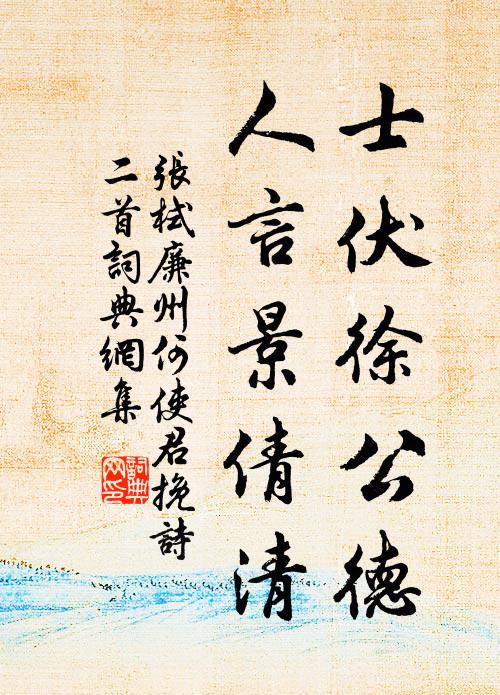 士伏徐公德
人言景倩清
張栻廉州何使君挽詩
二首詞典網集
詞典
网印